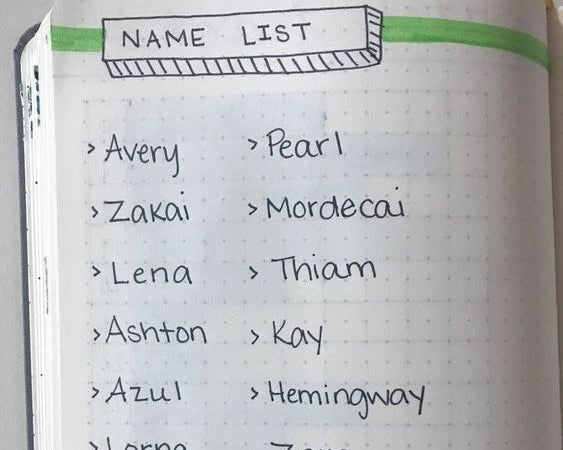 NAME LIST
> Avery > Pearl
> Zakai > Mordecai
> Lena > Thiam
> Ashton > Kay
> Azul > Hemingway
> Lorna